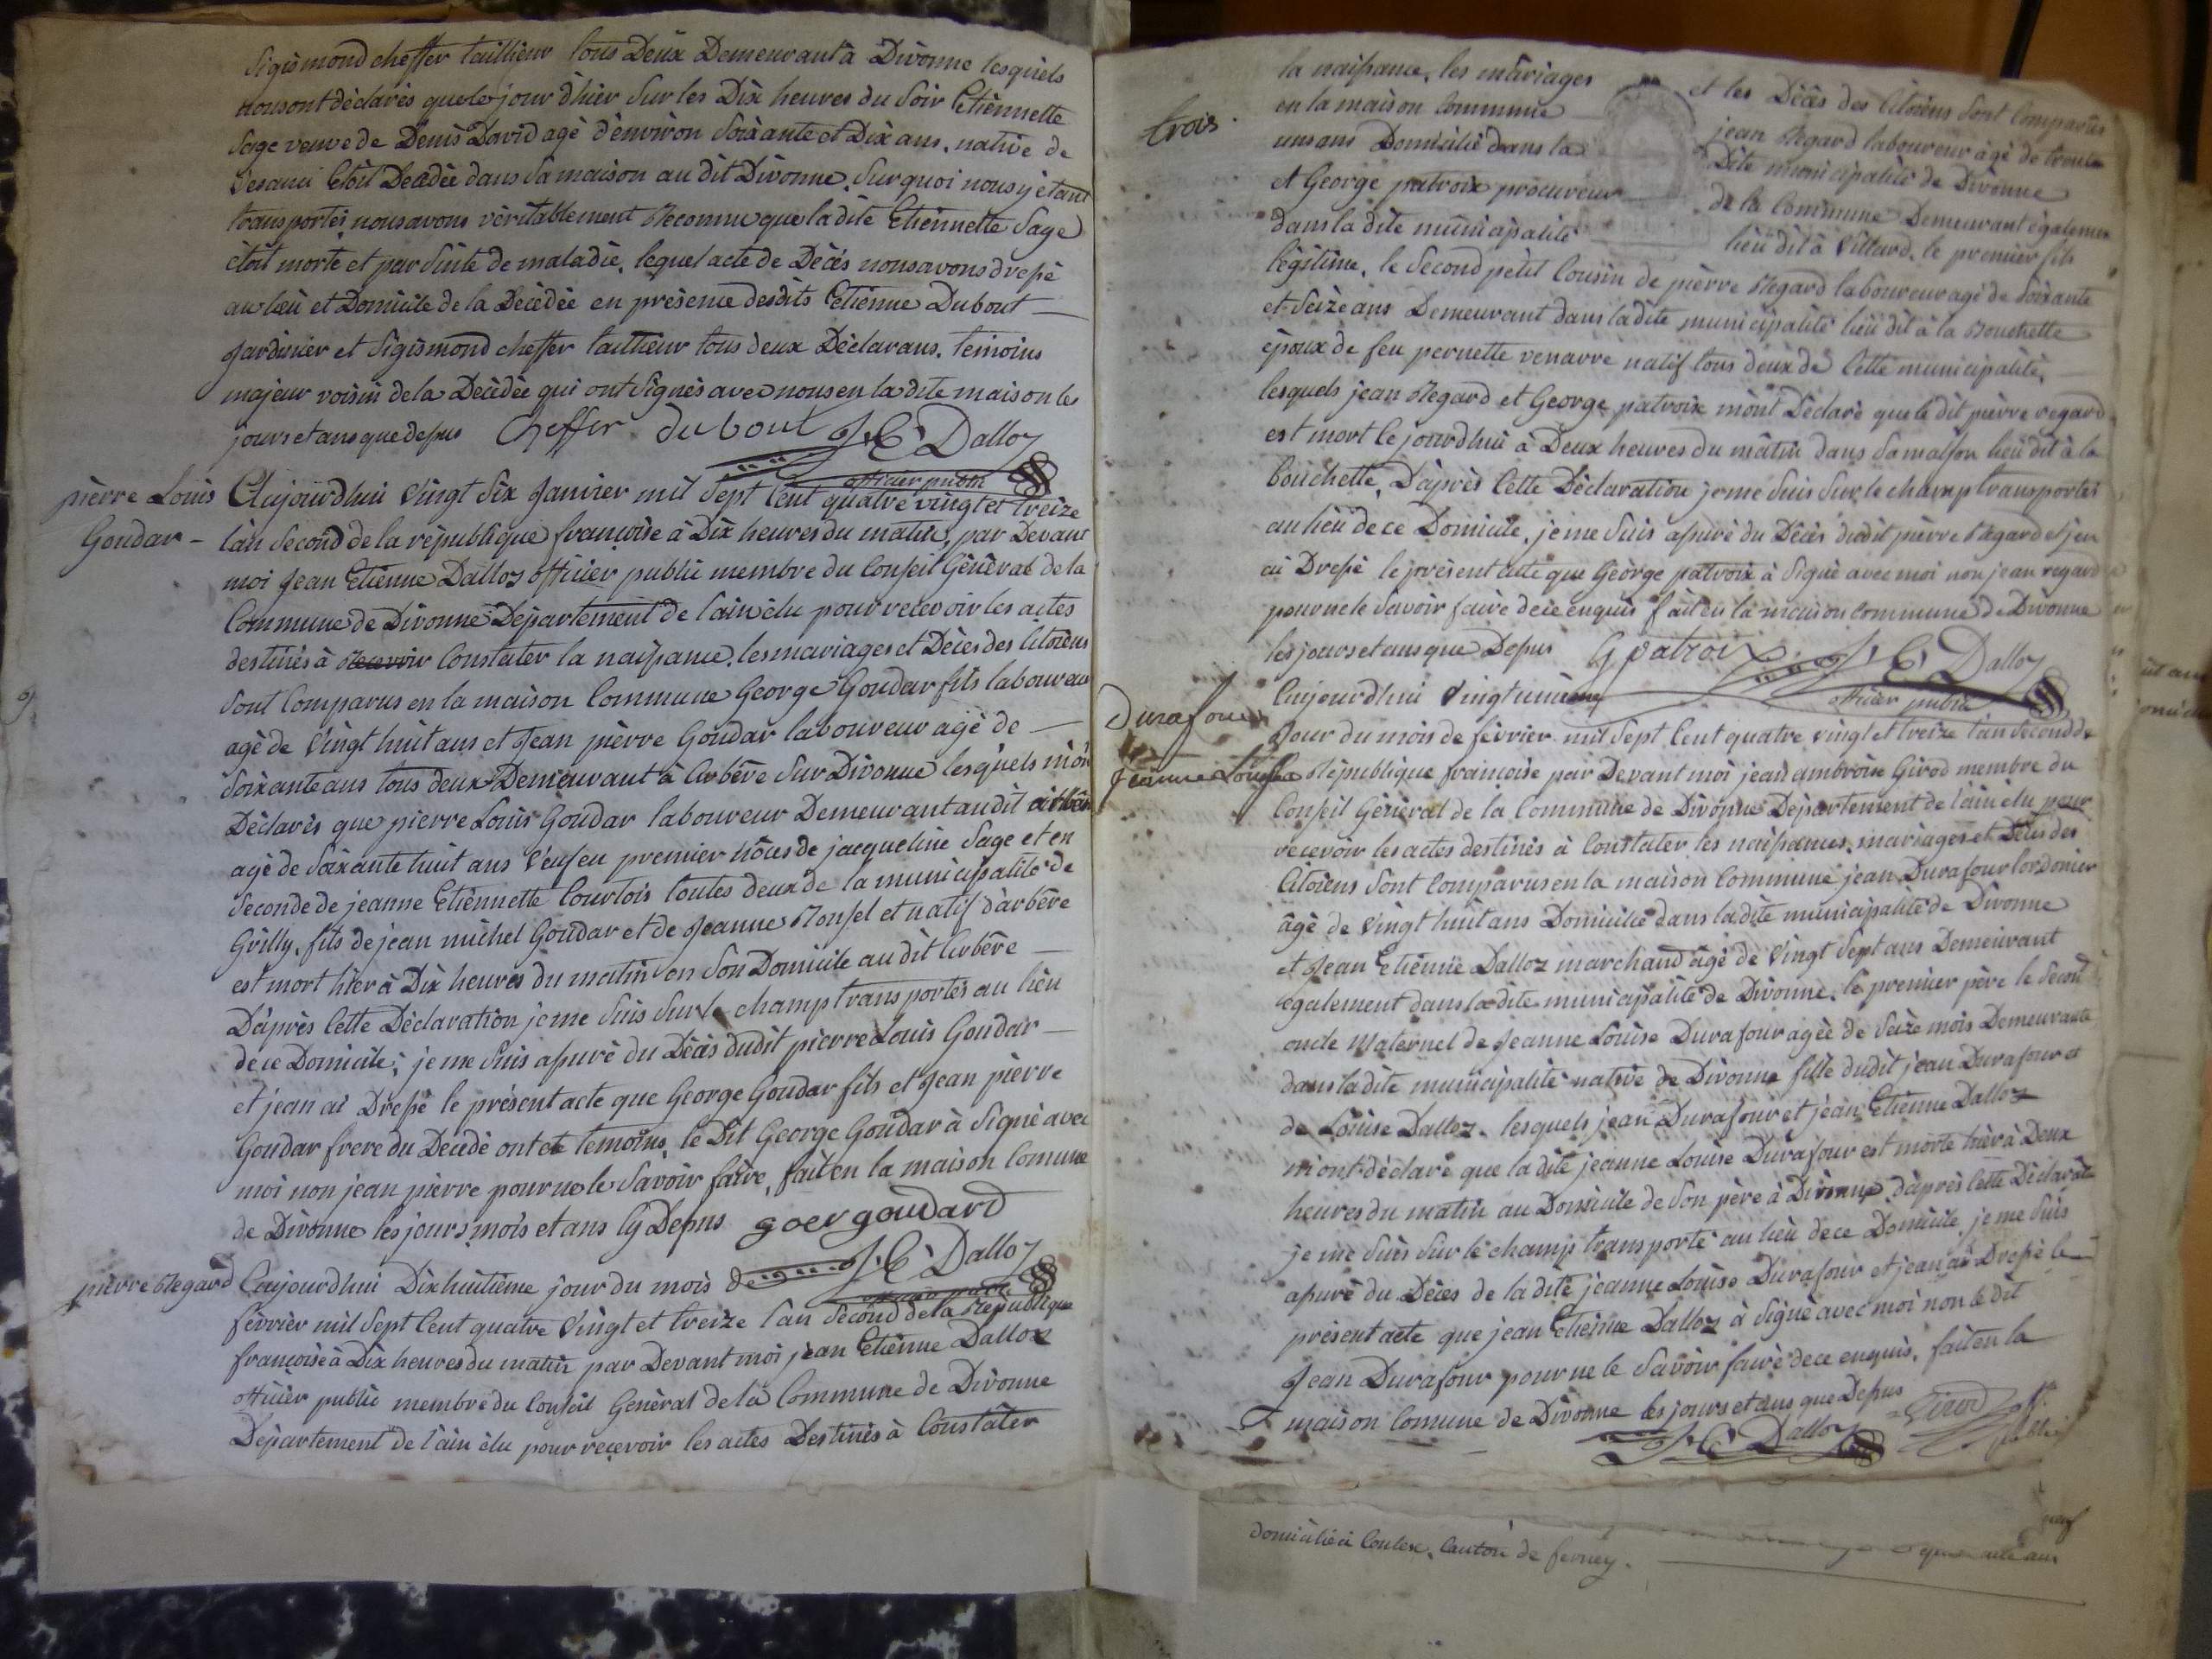 Sigismond cheffer taillieur tous Deux Demeurant à Divonne lesquels
nousont dèclarès que le jour d'hier Sur les Dix heures du Soir Etiennette
Sage veuve de Denis David agè d'environ Soixante et Dix ans, native de
étoit Decèdèe dans Sa maison au dit Divonne, Sur quoi nous y ètant
transportés nous avons vèritablement Reconnu que la dite Etiennette Sage
ètoit morte et par Suite de maladie, lequel acte de Dècès nous avons dressè
au lieu et Domicile de la Dècèdèe en prèsence desdits Etienne Dubout
Jardinier et Sigismond cheffer taillieur tous deux Dèclarans, temoins
majeur voisin de la Dècèdèe qui ont Signès avec nous en la dite maison les
jours et ans que dessus Cheffer dubout J. E. Dalloz
officier public
pièrre Louis
Goudar -
Aujourdhui Vingt Six Janvier mil Sept Cent quatre vingt et treize
l'an Second de la rèpublique françoise à Dix heures du matin, par Devant
moi Jean Etienne Dalloz officier public membre du Conseil Gènèral de la
Commune de Divonne Dèpartement de l'ain èlu pour recevoir les actes
destinès à Recevoir Constater la naissance, les mariages et Dècès des Citoiens
Sont Comparus en la maison Commune George Goudar fils laboureur
agè de Vingt huit ans et Jean pièrre Goudar laboureur agè de
Soixante ans tous deux Demeurant à Arbère Sur Divonne lesquels m'ont
Dèclarès que pierre Louis Goudar laboureur Demeurant audit arbère
agè de Soixante huit ans Veuf en premier nôces de jacqueline Sage et en
Seconde de jeanne Etiennette Courtois toutes deux de la municipalité de
Grilly, fils de jean michel Goudar et de Jeanne Ronsel et natif d'arbère
est mort hier à Dix heures du matin en Son Domicile au dit Arbère
D'après Cette Dèclaration je me Suis Sur le champ transportés au lieu
de ce Domicile, je me Suis assurè du Dècès dudit pierre Louis Goudar
et jean ai Dressè le prèsent acte que George Goudar fils et Jean pièrre
Goudar frere du Decèdè ont etè temoins, le Dit George Goudar à Signè avec
moi non jean pièrre pour ne le Savoir faire, fait en la maison Comune
de Divonne les jours, mois et ans Cy Dessus goer goudard
J. E. Dalloz
officier public
pièrre Regard
Aujourdhui Dixhuitième jour du mois de
fèvrièr mil Sept Cent quatre Vingt et treize l'an Second de la Rèpublique
françoise à Dix heures du matin par Devant moi jean Etienne Dalloz
officièr public membre du Conseil Gènèral de la Commune de Divonne
Dèpartement de l'ain èlu pour recevoir les actes Destinès à Constater
trois.
la naissance, les mariages et les Dècès des Citoiens Sont Comparus
en la maison Commune jean Regard laboureur àgè de trente
uns ans Domicilié dans la Dite municipalitè de Divonne
et George patroix procureur de la Commune Demeurant ègalement
dans la dite municipalitè lieu dit à Villard, le premier fils
lègitime, le Second petit Cousin de pièrre Regard laboureur agè de Soixante
et Seize ans Demeurant dans ladite municipalitè lieu dit à la Bouchette
èpoux de feu pernette venarre natif tous deux de Cette municipalitè,
lesquels jean Regard et George patroix mont Dèclarè que le dit pièrre regard
est mort le jourdhui à Deux heures du màtin dans Sa maison lieu dit à la
bouchette, D'après Cette Dèclaration je me Suis Sur le champ transportés
au lieu de ce Domicile, je me Suis assurè du Dècès dudit pièrre Regard et jen
ai Dressè le prèsent acte que Gèorge patroix à Signè avec moi non jean regard
pour ne le Savoir faire de ce enquis fait en la maison commune de Divonne
les jours et ans que Dessus G patroix J. E. Dalloz
officier public
Durafour
Jeanne Louise
Aujourdhui Vingtunième
Jour du mois de fèvrier mil Sept Cent quatre vingt et treize l'an Second de
la Rèpublique françoise par Devant moi jean ambroise Girod membre du
Conseil Gènèral de la Commune de Divonne Dèpartement de l'ain èlu pour
recevoir les actes destinès à Constater les naissances, mariages et Dècès des
Citoiens Sont Comparus en la maison Commune jean Durafour Cordonier
âgè de Vingt huit ans Domicilié dans ladite municipalitè de Divonne
et Jean Etienne Dalloz marchand âgè de Vingt Sept ans Demeurant
ègalement dans la dite municipalitè de Divonne, le premier père le Second
oncle Maternel de Jeanne Louise Durafour agèe de Seize mois Demeurante
dans ladite municipalitè native de Divonne fille dudit jean Durafour et
de Louise Dalloz, lesquels jean Durafour et jean Etienne Dalloz
m'ont dèclarè que la dite jeanne Louise Durafour est morte hièr à Deux
heures du matin au Domicile de Son père à Divonne, d'après Cette Dèclaration
je me Suis Sur le champ transportè au lieu de ce Domicile, je me Suis
assurè du Dècès de la dite jeanne Louise Durafour et jean ai Dressè le
prèsent acte que jean Etienne Dalloz à Signè avec moi non le dit
Jean Durafour pour ne le Savoir faire de ce enquis, fait en la
maison Comune de Divonne les jours et ans que Dessus Girod off.
J. E. Dalloz public
domicilié à Coulex, Canton de ferney.